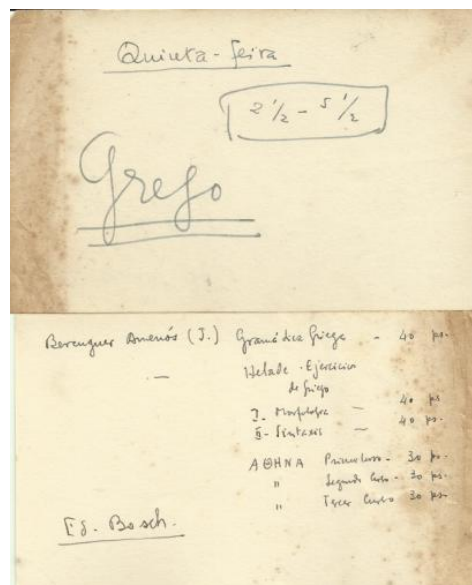 Quinta-feira
2 1/2 - 5 1/2
Grego
Berenguer Amenós (J.) Gramática Griega - 40 ps.
— Helade - Ejercicios
de Griego
I. Morfología — 40 ps
II - Sintaxis — 40 ps.
ΑΘΗΝΑ Primer Curso - 30 ps.
" Segundo Curso - 30 ps.
" Tercer Curso 30 ps.
Ed. Bosch.